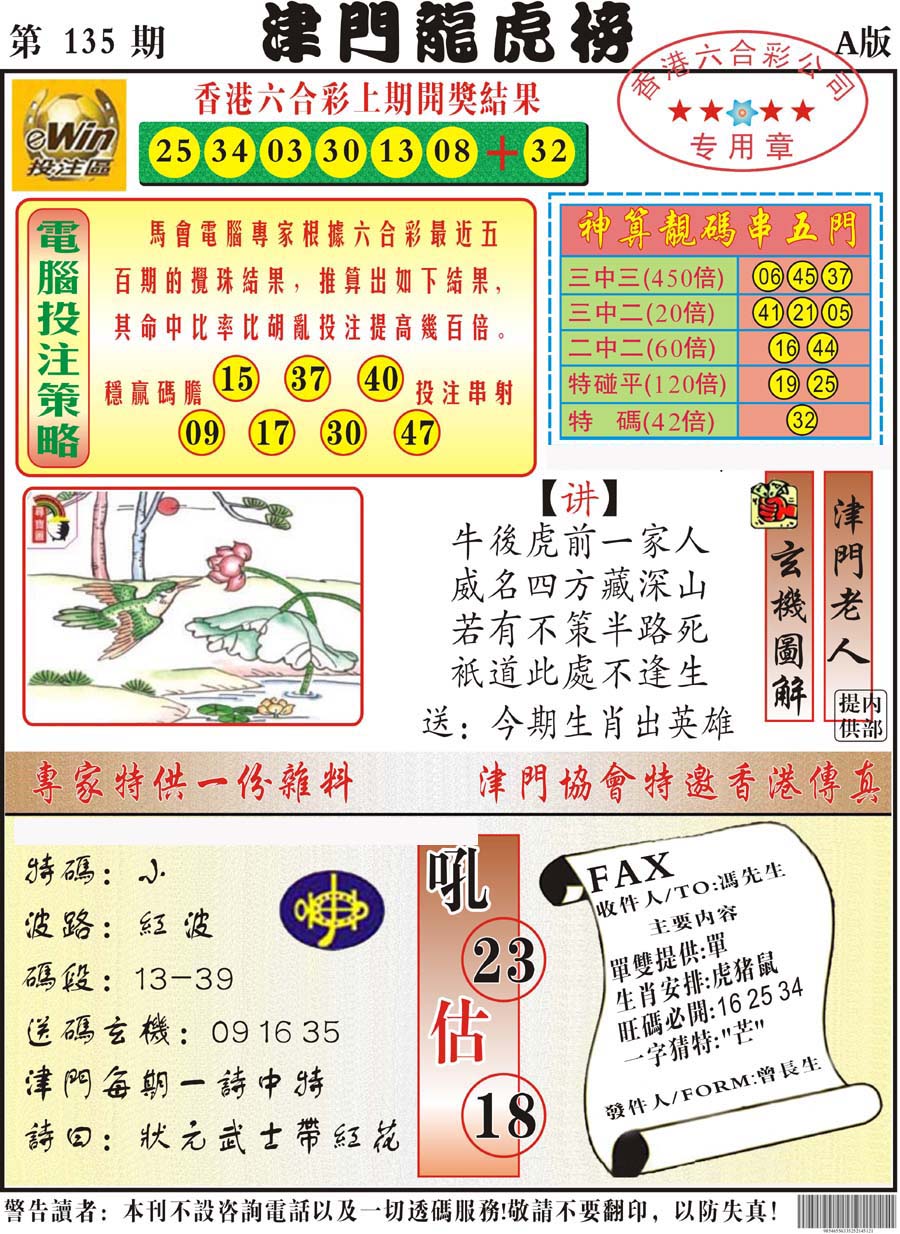 第 135 期
津門龍虎榜
A版
eWin
投注區
香港六合彩上期開獎結果
25 34 03 30 13 08 + 32
香港六合彩公司
★★★★
专用章
電腦投注策略
馬會電腦專家根據六合彩最近五
百期的攪珠結果，推算出如下結果，
其命中比率比胡亂投注提高幾百倍。
穩贏碼膽 15 37 40 投注串射
09 17 30 47
神算靚碼串五門
三中三(450倍) 06 45 37
三中二(20倍) 41 21 05
二中二(60倍) 16 44
特碰平(120倍) 19 25
特 碼(42倍) 32
尋寶圖
【讲】
牛後虎前一家人
威名四方藏深山
若有不策半路死
衹道此處不逢生
送：今期生肖出英雄
玄機圖解
津門老人
内部提供
專家特供一份雜料
津門協會特邀香港傳真
特碼：小
波路：紅波
碼段：13-39
送碼玄機：09 16 35
津門每期一詩中特
詩曰：狀元武士帶紅花
吼
23
估
18
FAX
收件人/TO:馮先生
主要内容
單雙提供:單
生肖安排:虎猪鼠
旺碼必開:16 25 34
一字猜特:"芒"
發件人/FORM:曾長生
警告讀者：本刊不設咨詢電話以及一切透碼服務!敬請不要翻印，以防失真！